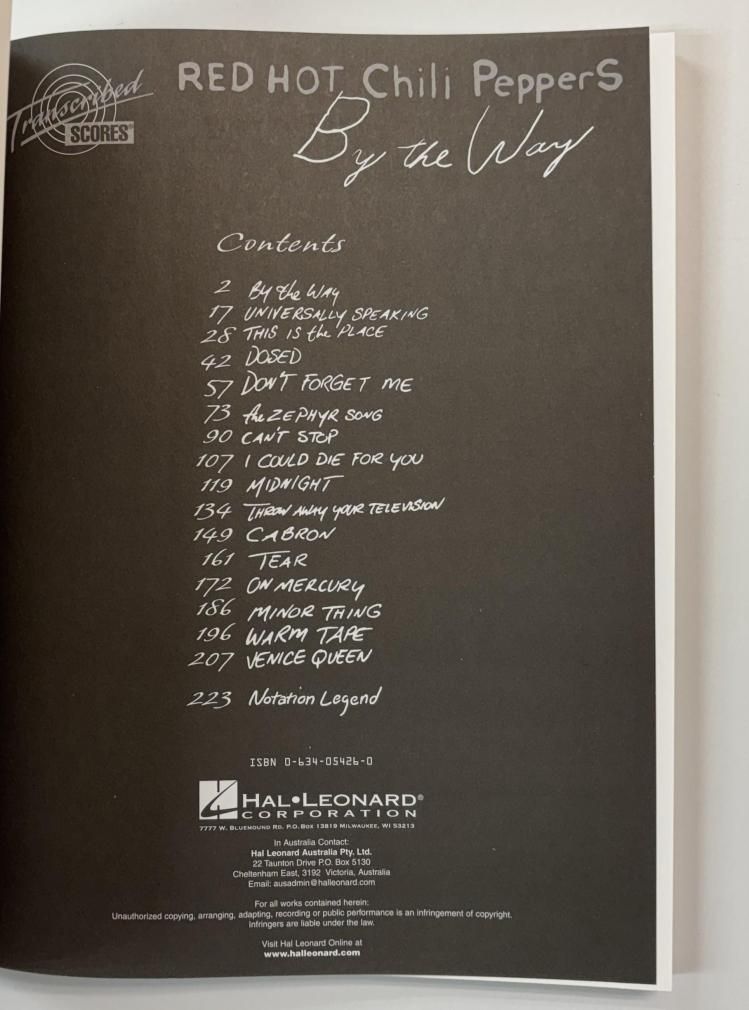 Transcribed
SCORES®
RED HOT Chili PepperS
By the Way
Contents
2 By the WAY
17 UNIVERSALLY SPEAKING
28 THIS IS the PLACE
42 DOSED
57 DON'T FORGET ME
73 the ZEPHYR SONG
90 CAN'T STOP
107 I COULD DIE FOR YOU
119 MIDNIGHT
134 THROW AWAY YOUR TELEVISION
149 CABRON
161 TEAR
172 ON MERCURY
186 MINOR THING
196 WARM TAPE
207 VENICE QUEEN
223 Notation Legend
ISBN 0-634-05426-0
HAL•LEONARD®
CORPORATION
7777 W. BLUEMOUND RD. P.O. BOX 13819 MILWAUKEE, WI 53213
In Australia Contact:
Hal Leonard Australia Pty. Ltd.
22 Taunton Drive P.O. Box 5130
Cheltenham East, 3192 Victoria, Australia
Email: ausadmin@halleonard.com
For all works contained herein:
Unauthorized copying, arranging, adapting, recording or public performance is an infringement of copyright.
Infringers are liable under the law.
Visit Hal Leonard Online at
www.halleonard.com